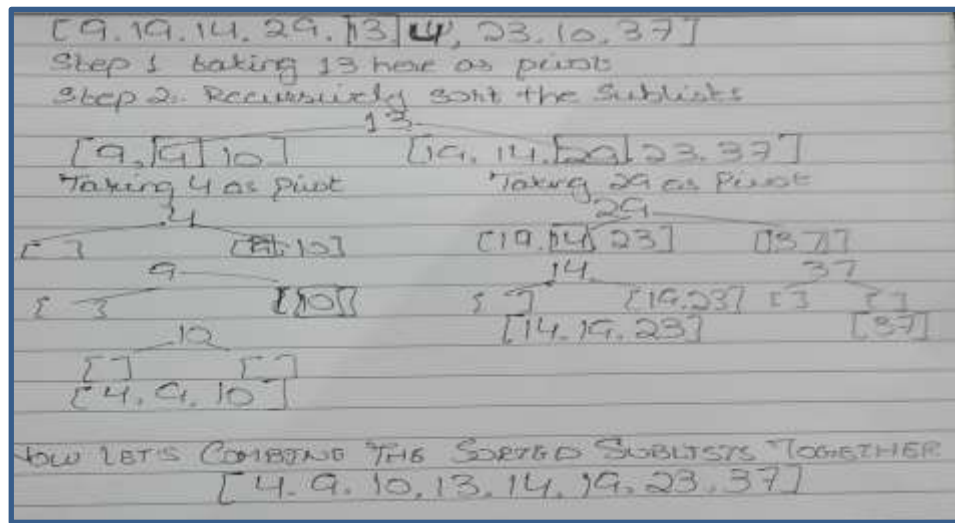 [9.19.14.29.13 4, 23.10.37]
Step 1 taking 13 here as pivot
Step 2:. Recursively sort the Sublists
13
[9, 4 10] [19. 14. 29 23. 37]
Taking 4 as Pivot Taking 29 as Pivot
4 29
[ ] [9. 10] [19. 14 23] [37]
9 14 37
[ ] [10] [ ] [19.23] [ ] [ ]
10 [14. 19. 23] [37]
[ ] [ ]
[4. 9. 10]
NOW LET'S COMBINE THE SORTED SUBLISTS TOGETHER
[4. 9. 10. 13. 14. 19. 23. 37]